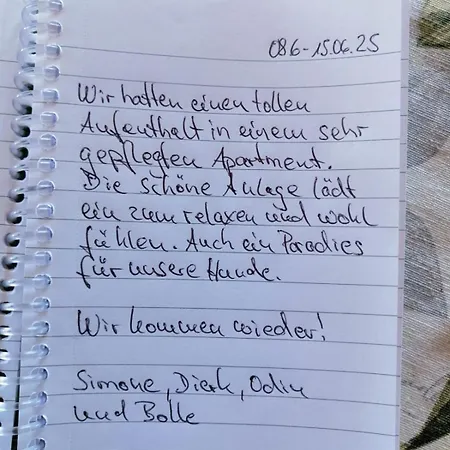 086-15.06.25
Wir hatten einen tollen
Aufenthalt in einem sehr
gepflegten Apartment.
Die schöne Anlage lädt
ein zum relaxen und wohl
fühlen. Auch ein Paradies
für unsere Hunde.
Wir kommen wieder!
Simone, Dierk, Odin
und Bolle